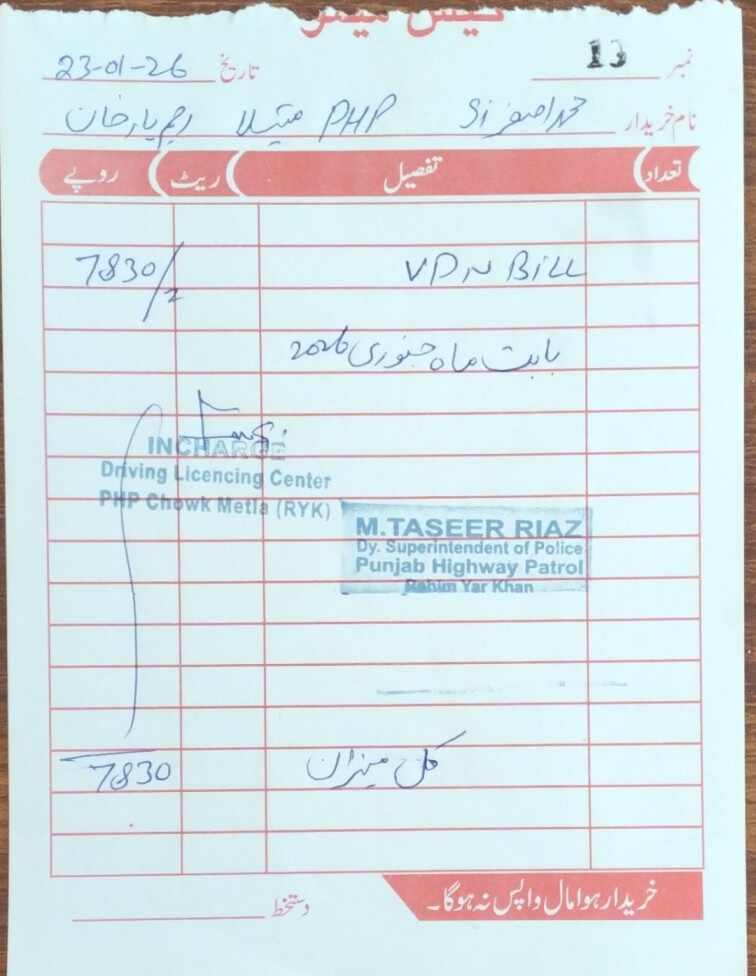 کیش میمو
نمبر 13 تاریخ 23-01-26
نام خریدار محمد اصغر SI PHP میتلا رحیم یار خان
تعداد تفصیل ریٹ روپے
VPN BILL 7830/2
بابت ماہ جنوری 2026
INCHARGE
Driving Licencing Center
PHP Chowk Metla (RYK)
M.TASEER RIAZ
Dy. Superintendent of Police
Punjab Highway Patrol
Rahim Yar Khan
کل میزان 7830
خریدا ہوا مال واپس نہ ہوگا۔
دستخط